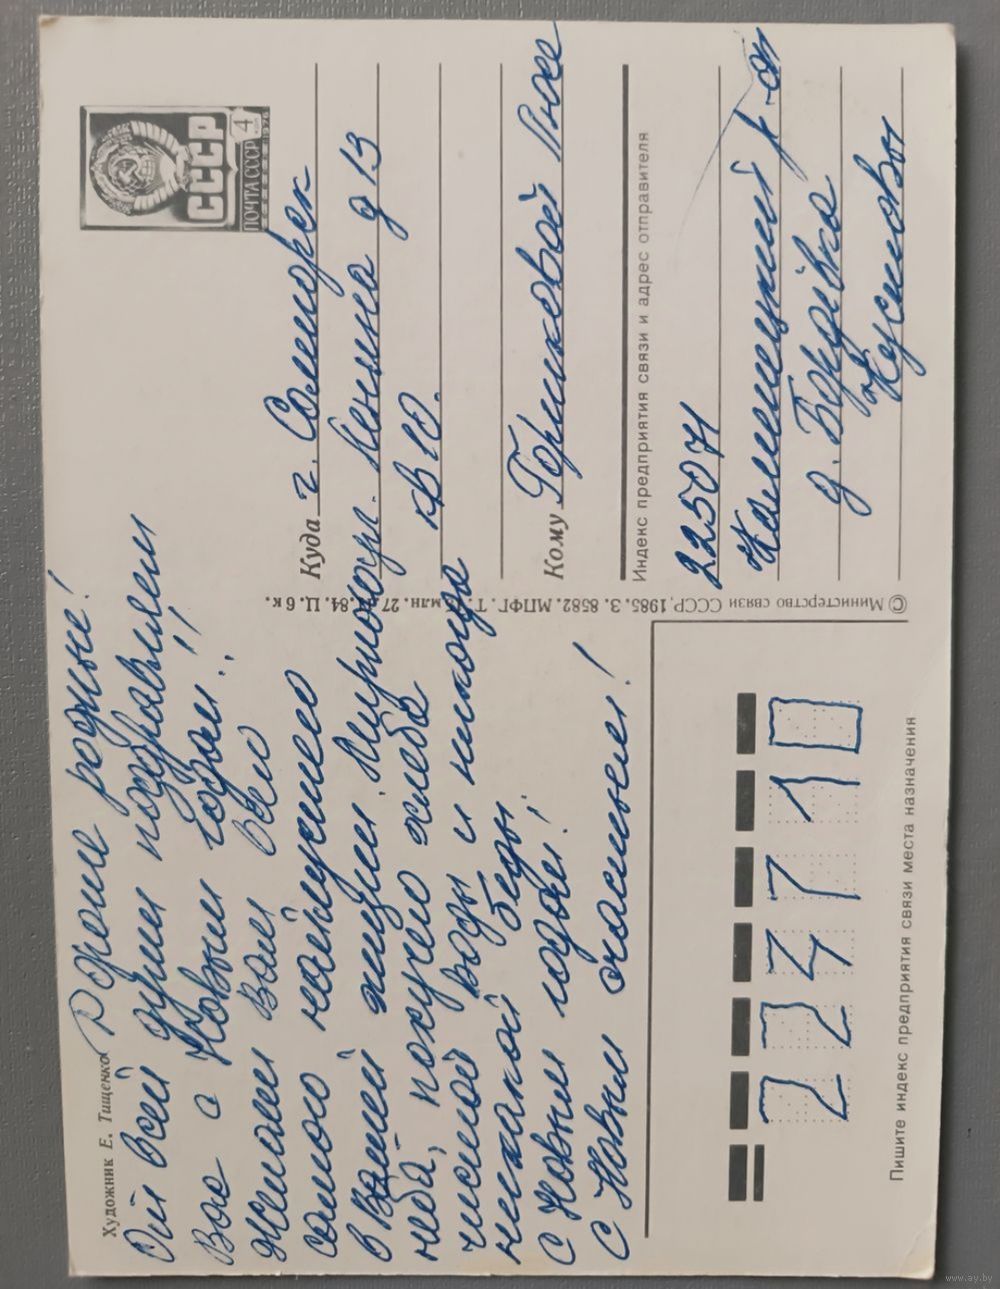 Художник Е. Тищенко
Дорогие родные!
От всей души поздравляем
Вас с Новым Годом!!
Желаем Вам всего
самого наилучшего
в Вашей жизни. Мирного
неба, покучео хлеба
чистой воды и никогда
никакой беды
С Новым годом!
С Новым счастьем!
СССР
ПОЧТА СССР 4 коп
1976
Куда г. Солигорск
ул. Ленина д 13
кв 10.
Кому Горшковой Рае
Индекс предприятия связи и адрес отправителя
225071
Каменецкий р-он
д. Бордівка
© Министерство связи СССР, 1985. З. 8582. МПФГ. Т. 15 млн. 27.11.84. Ц. 6 к.
224710
Пишите индекс предприятия связи места назначения
www.ay.by